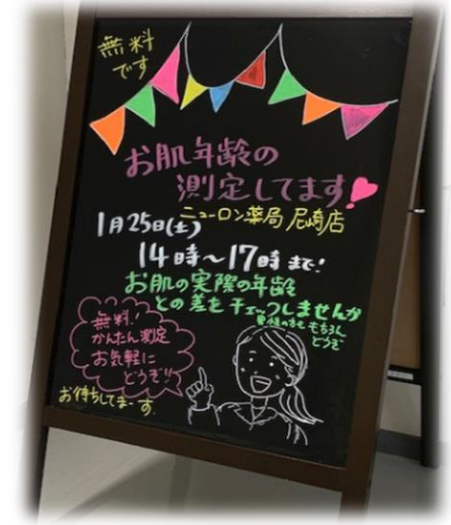 無料
です
お肌年齢の
測定してます!
ニューロン薬局 尼崎店
1月25日(土)
14時〜17時まで!
お肌の実際の年齢
との差をチェックしませんか
男性の方も もちろん
どうぞ
無料!
かんたん測定
お気軽に
どうぞ!!
お待ちしてまーす